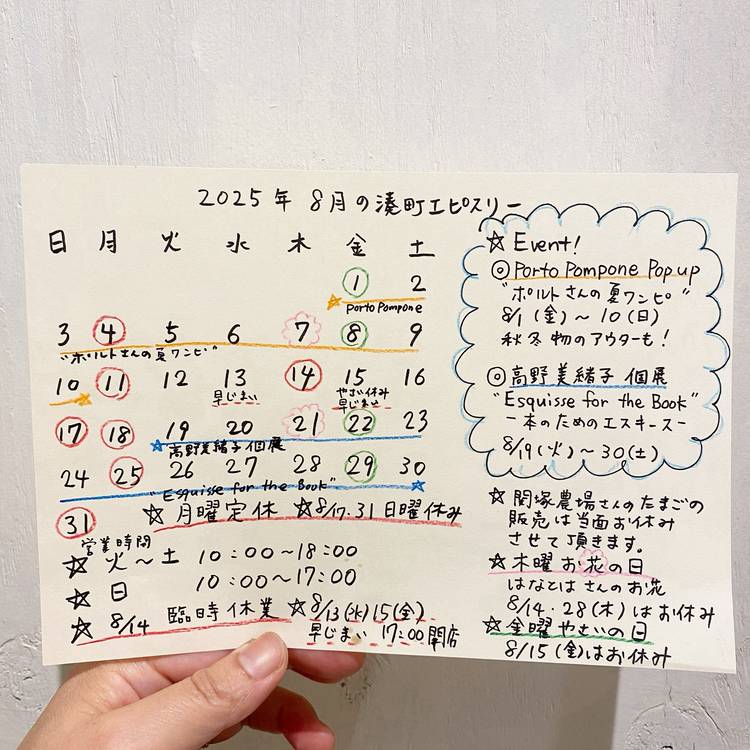 2025年 8月の湊町エピスリー
日 月 火 水 木 金 土
1 2
☆Porto Pompone
3 4 5 6 7 8 9
"ポルトさんの夏ワンピ"
10 11 12 13 14 15 16
早じまい
やさい休み
早じまい
17 18 19 20 21 22 23
☆高野美緒子 個展
24 25 26 27 28 29 30
"Esquisse for the Book"
31
☆月曜定休 ☆8/17.31 日曜休み
営業時間
☆ 火〜土 10:00〜18:00
☆ 日 10:00〜17:00
☆ 8/14 臨時休業 ☆8/13(水)15(金)
早じまい 17:00閉店
☆ Event!
◎Porto Pompone Pop up
"ポルトさんの夏ワンピ"
8/1(金)〜10(日)
秋冬物のアウターも!
◎高野美緒子 個展
"Esquisse for the Book"
ー本のためのエスキースー
8/19(火)〜30(土)
☆関塚農場さんのたまごの
販売は当面お休み
させて頂きます。
☆木曜 お花の日
はなとは さんのお花
8/14・28(木)はお休み
☆金曜やさいの日
8/15(金)はお休み